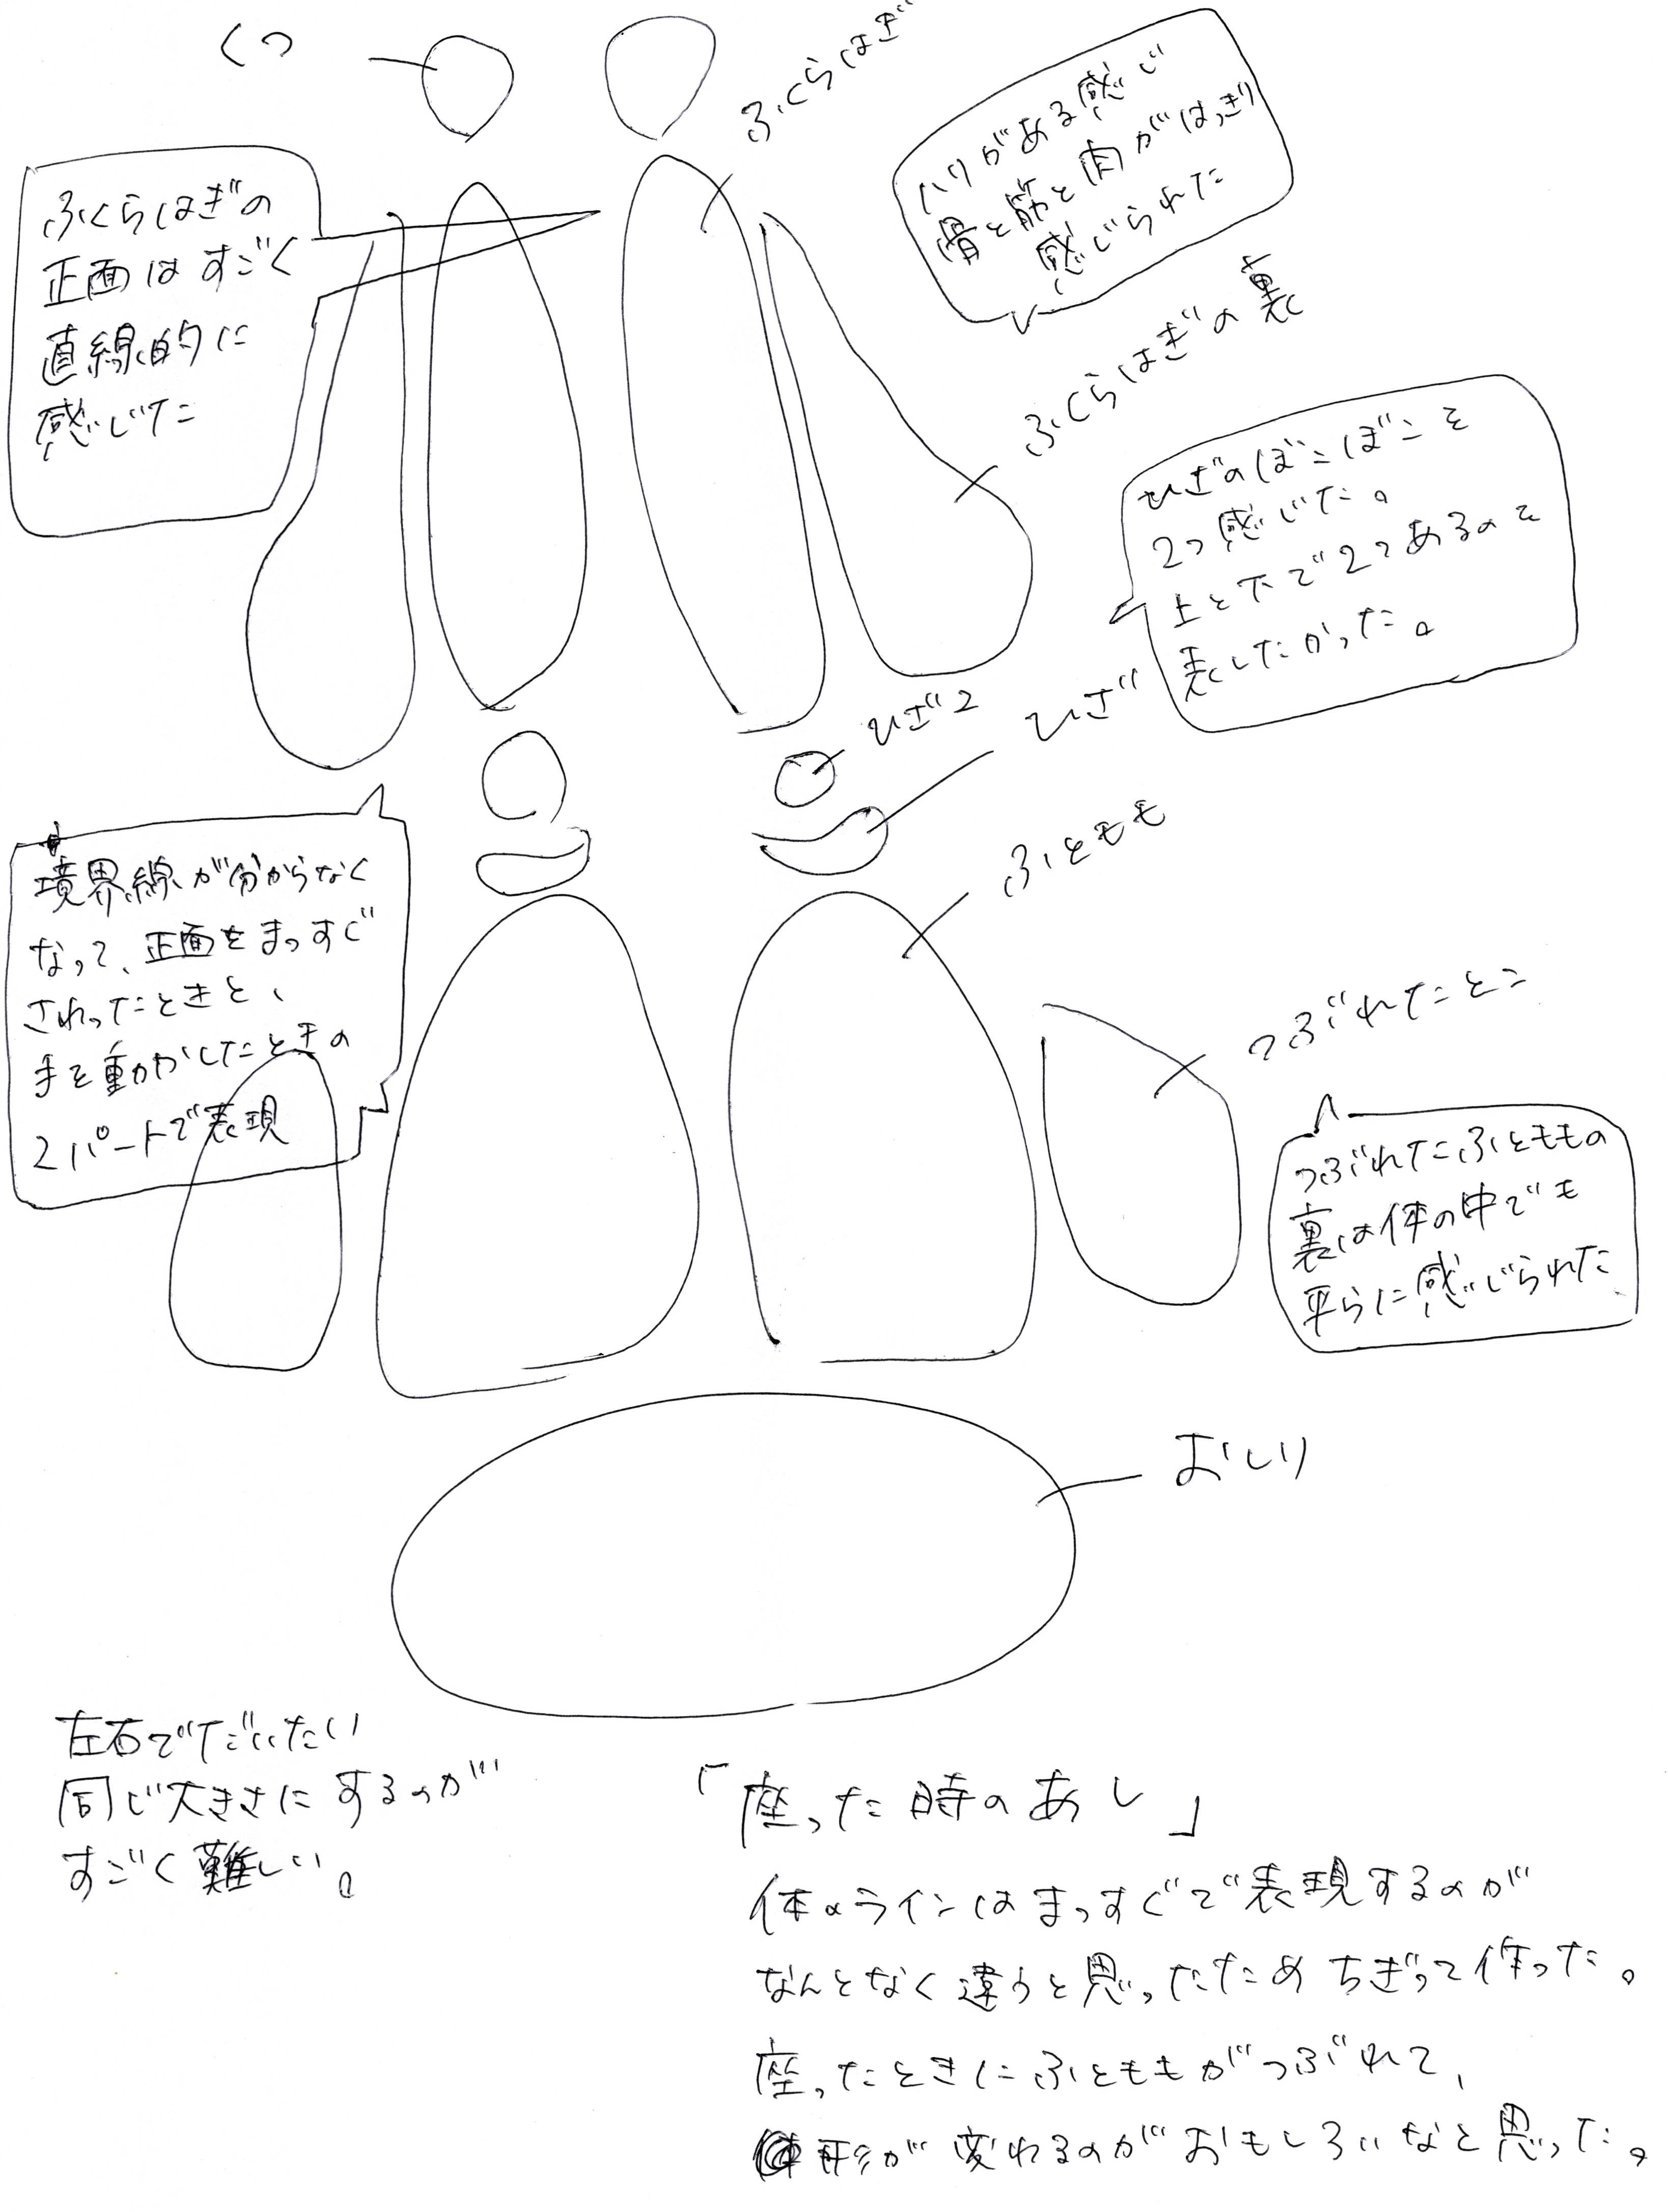 くつ
ふくらはぎ
ハリがある感じ
骨と筋と肉がはっきり
感じられた
ふくらはぎの
正面はすごく
直線的に
感じた
ふくらはぎの裏
ひざのぼこぼこを
2つ感じた。
上と下で2つあるのを
表したかった。
ひざ2
ひざ
ふともも
境界線が分からなく
なって、正面をまっすぐ
さわったときと、
手を動かしたときの
2パートで表現
つぶれたとこ
つぶれたふとももの
裏は体の中でも
平らに感じられた
おしり
左右でだいたい
同じ大きさにするのが
すごく難しい。
「座った時のあし」
体のラインはまっすぐで表現するのが
なんとなく違うと思っただためちぎって作った。
座ったときにふとももがつぶれて、
形が変わるのがおもしろいなと思った。